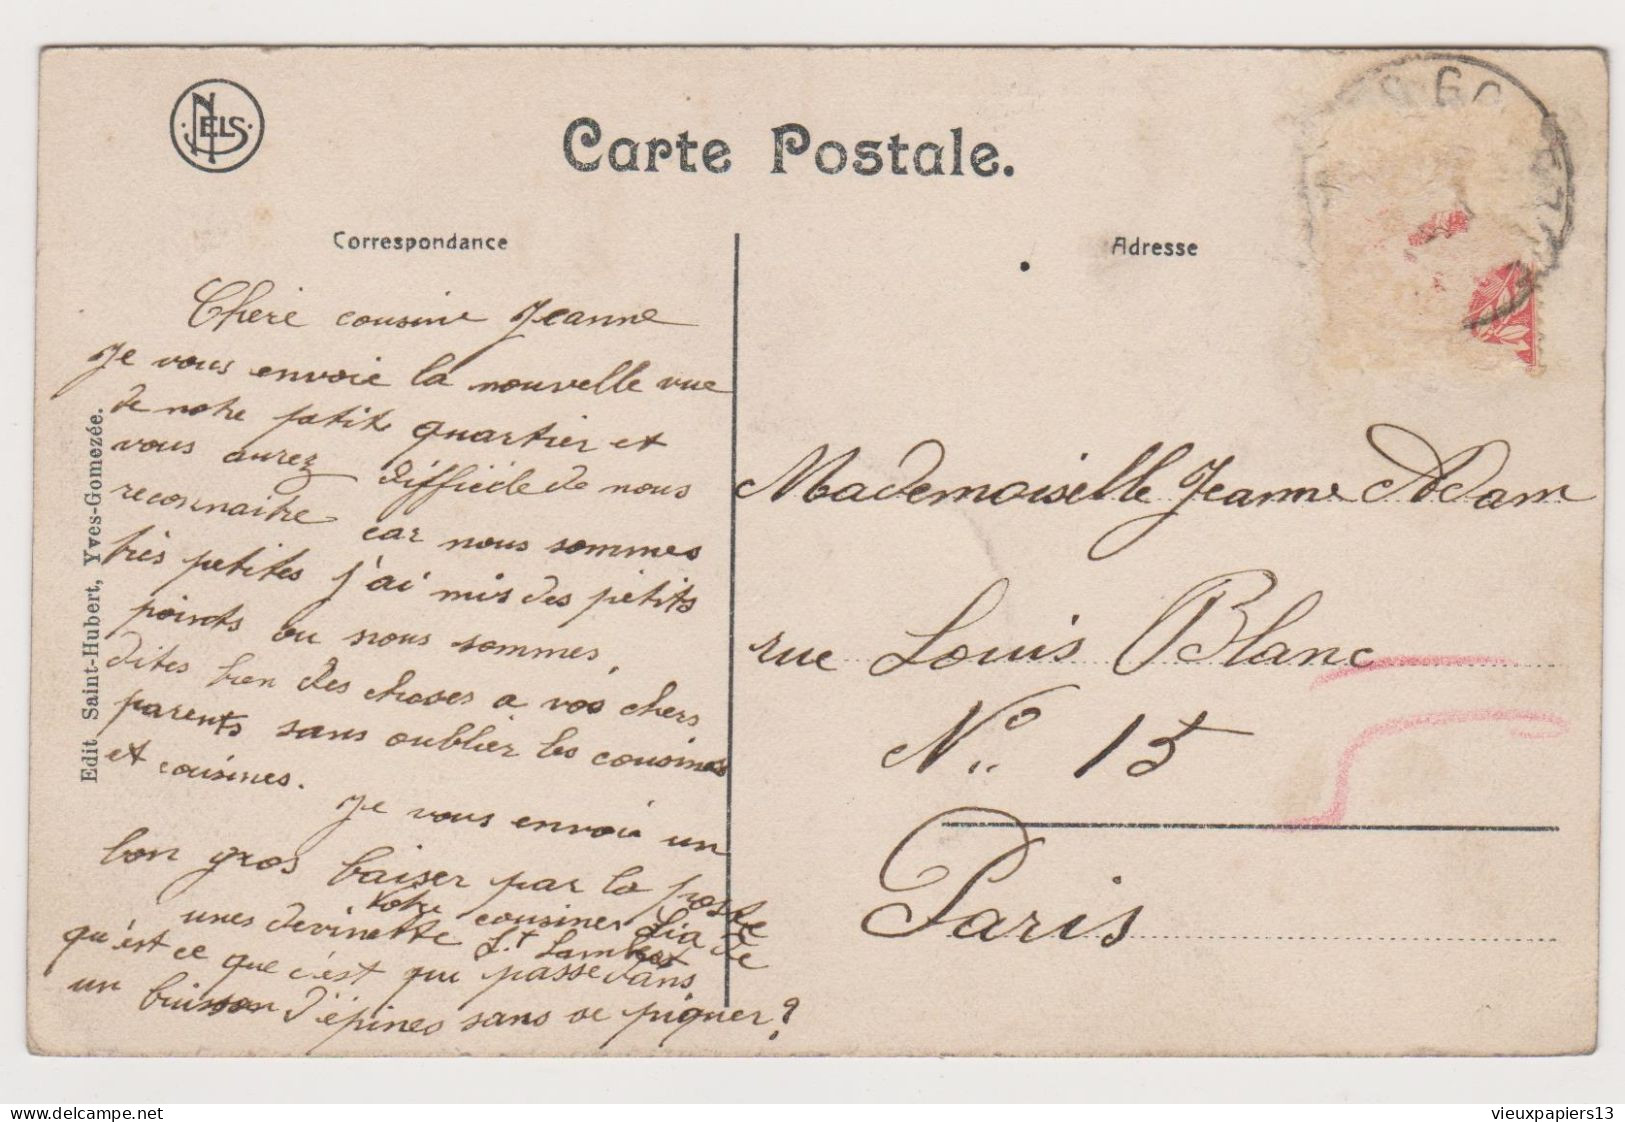 NELS
Carte Postale.
Correspondance
Adresse
Chère cousine Jeanne
Je vous envoie la nouvelle vue
de notre petit quartier et
vous aurez difficile de nous
reconnaitre car nous sommes
très petites j'ai mis des petits
points ou nous sommes,
dites bien des choses a vos chers
parents sans oublier les cousines
et cousines.
Je vous envoie un
bon gros baiser par la poste
Votre cousine Lia de
St Lambert
unes devinette
qu'est ce que c'est qui passe dans
un buisson d'épines sans se piquer?
Edit Saint-Hubert, Yves-Gomezée.
Mademoiselle Jeanne Adam
rue Louis Blanc
No 15
Paris
vieuxpapiers13